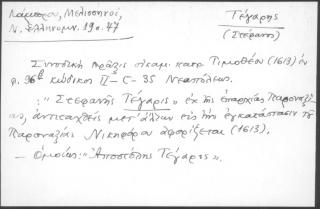 Λάμπρου, Μελισηνοί,
Ν. Ἑλληνομν. 19α. 47
Τέγαρης
(Στέφανος)
Συνοδικὴ πρᾶξις πατρ. Τιμοθέου (1613) ἐν
φ. 96 κώδικος II - C - 35 Νεαπόλεως.
: "Στεφανῆς Τέγαρις" ἐκ τῆς ἐπαρχίας Παροναξί
ας, ἀντιταχθεὶς μετ' ἄλλων εἰς τὴν ἐγκατάστασιν τοῦ
Παροναξίας Νικηφόρου ἀφορίζεται (1613).
— Ὁμοίως: "Ἀποστόλης Τέγαρης".